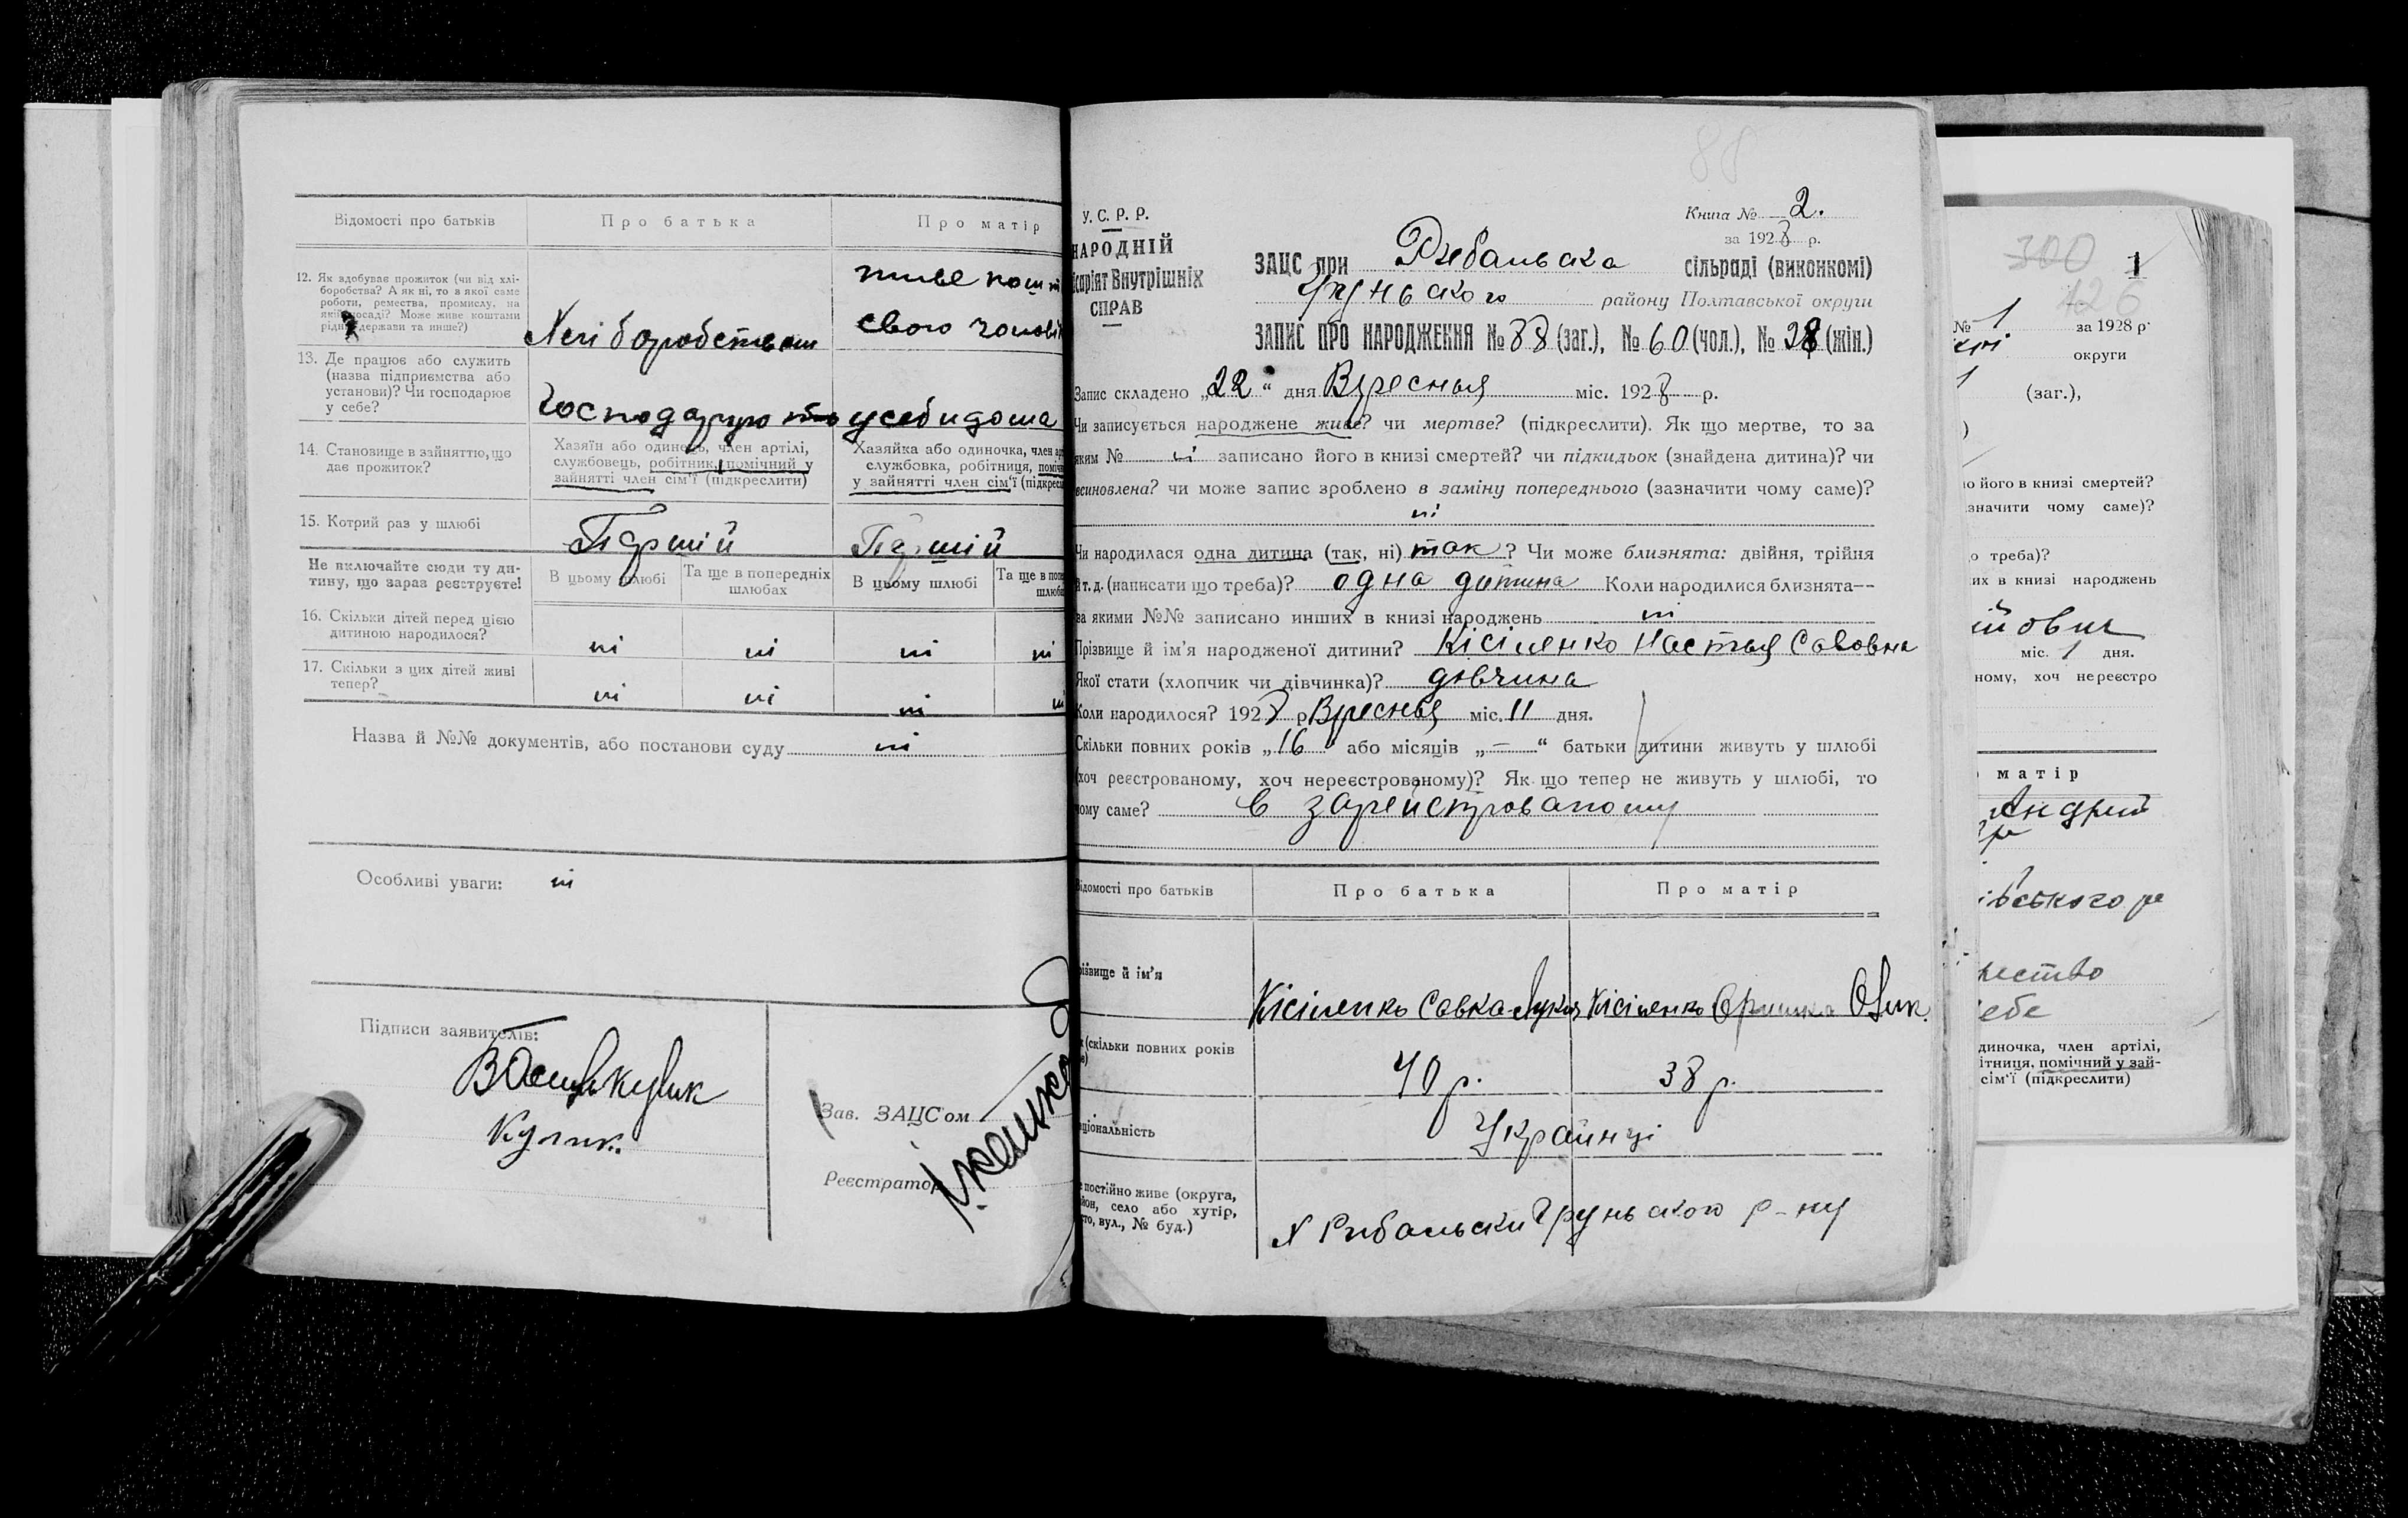 Відомості про батьків
Про батька
Про матір
12. Як здобуває прожиток (чи від хлі-
боробства? А як ні, то в якої саме
роботи, ремества, промислу, на
якій посаді? Може живе коштами
рідні, держави та инше?)
Хліборобством
живе кошт
свого чоловік
13. Де працює або служить
(назва підприємства або
установи)? Чи господарює
у себе?
Господарують у себи дома
14. Становище в зайняттю, що
дає прожиток?
Хазяїн або одинець, член артілі,
службовець, робітник, помічний у
зайнятті член сім'ї (підкреслити)
Хазяйка або одиночка, член ар
службовка, робітниця, поміч
у зайнятті член сім'ї (підкресл
15. Котрий раз у шлюбі
Першій
Першій
Не включайте сюди ту ди-
тину, що зараз реєструєте!
В цьому шлюбі
Та ще в попередніх
шлюбах
В цьому шлюбі
Та ще в попе
шлюба
16. Скільки дітей перед цією
дитиною народилося?
ні ні ні ні
17. Скільки з цих дітей живі
тепер?
ні ні ні ні
Назва й №№ документів, або постанови суду ні
Особливі уваги: ні
Підписи заявителів:
Кулик.
Зав. ЗАЦС'ом
Реєстратор
88
У. С. Р. Р.
НАРОДНІЙ
ісаріят Внутрішніх
СПРАВ
Книга № 2.
за 1928 р.
ЗАЦС при Рибальска сільраді (виконкомі)
Груньского району Полтавської округи
ЗАПИС ПРО НАРОДЖЕННЯ № 88 (заг.), № 60 (чол.), № 28 (жін.)
Запис складено „22“ дня Вереснья міс. 1928 р.
Чи записується народжене живе? чи мертве? (підкреслити). Як що мертве, то за
яким № ні записано його в книзі смертей? чи підкидьок (знайдена дитина)? чи
всиновлена? чи може запис зроблено в заміну попереднього (зазначити чому саме)?
ні
Чи народилася одна дитина (так, ні) так? Чи може близнята: двійня, трійня
й т. д. (написати що треба)? одна дитина Коли народилися близнята—
за якими №№ записано инших в книзі народжень ні
Прізвище й ім'я народженої дитини? Кісіленко Настья Савовна
Якої стати (хлопчик чи дівчинка)? дівчина
Коли народилося? 1928 р Вереснья міс. 11 дня.
Скільки повних років „16“ або місяців „—“ батьки дитини живуть у шлюбі
(хоч реєстрованому, хоч нереєстрованому)? Як що тепер не живуть у шлюбі, то
чому саме? в зарейстрованому
Відомості про батьків
Про батька
Про матір
різвище й ім'я
Кісіленко Савка
Кісіленко Оришка
к (скільки повних років
40 р.
38 р.
ціональність
Українці
е постійно живе (округа,
йон, село або хутір,
сто, вул., № буд.)
х Рибальски Груньского р-ну
300
1
126
№ 1 за 1928 р.
округи
1
(заг.),
)
о його в книзі смертей?
значити чому саме)?
о треба)?
их в книзі народжень
міс. 1 дня.
ному, хоч нереєстро
матір
Андрий
івського р
ество
ебе
диночка, член артілі,
ітниця, помічний у зай-
сім'ї (підкреслити)